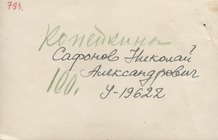 791.
Копейкина
Сафонов Николай
100.
Александрович
У-19622